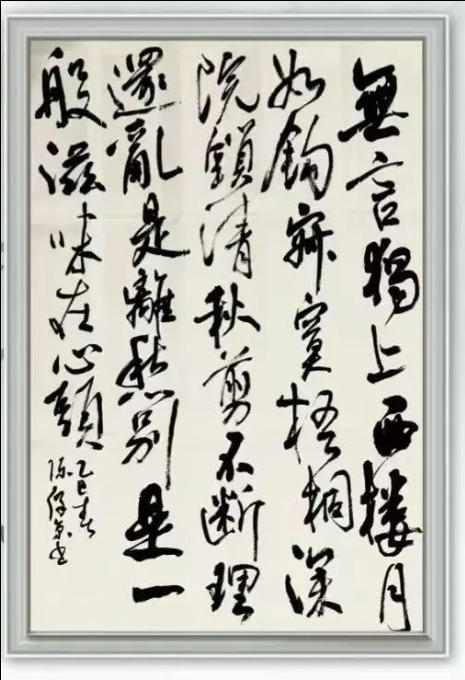 無言獨上西樓月
如鈎寂寞梧桐深
院鎖清秋剪不斷理
還亂是離愁别是一
般滋味在心頭
乙巳春